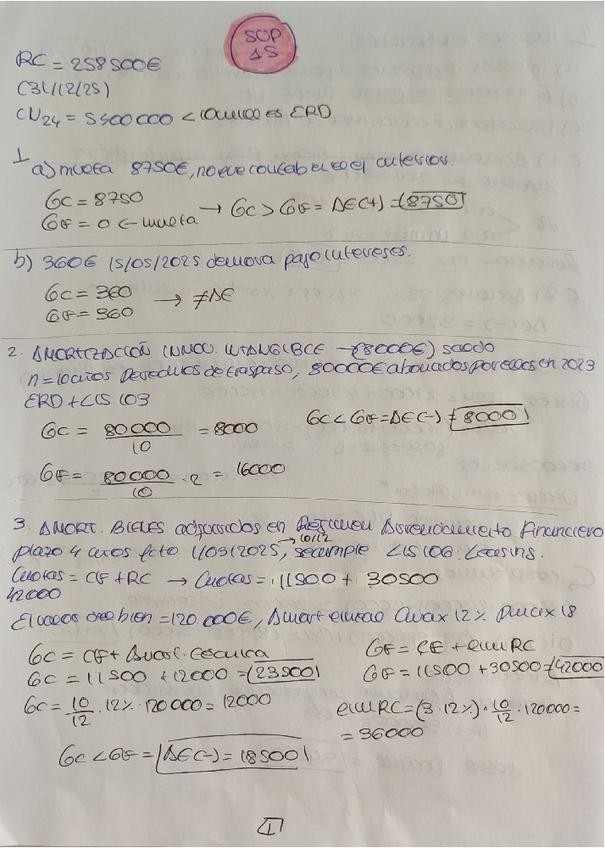 SOP
15
RC = 258500€
(31/12/25)
CN24 = 5400000 < 10M100 es ERD
1
a) multa 8750€, no fue contable en el anterior.
GC = 8750
GF = 0 ← multa → GC > GF = ΔE(+) = (8750)
b) 360€ 15/05/2025 demora pago intereses.
GC = 360
GF = 360 → ≠ΔE
2. AMORTIZACIÓN INMO. INTANGIBLE → (8000€) saldo
n = 10 años Derechos de traspaso, 80000€ abonados por ellos en 2023
ERD + LIS 103
GC = 80000 / 10 = 8000 GC < GF = ΔE(-) = 8000
GF = 80000 / 10 · 2 = 16000
3. AMORT. BIENES adquiridos en Régimen Arrendamiento Financiero
plazo 4 años fcto 1/03/2025, → 10/12 se cumple LIS 106: Leasing.
Cuotas = CF + RC → Cuotas = 11500 + 30500
42000
El valor del bien = 120.000€, Amort lineal Cmax 12% Pmax 18
GC = CF + Amort. técnica GF = CF + lim RC
GC = 11500 + 12000 = (23500) GF = 11500 + 30500 = (42000)
GC = 10/12 · 12% · 120000 = 12000 lim RC = (3 · 12%) · 10/12 · 120000 =
= 36000
GC < GF = ΔE(-) = 18500
1